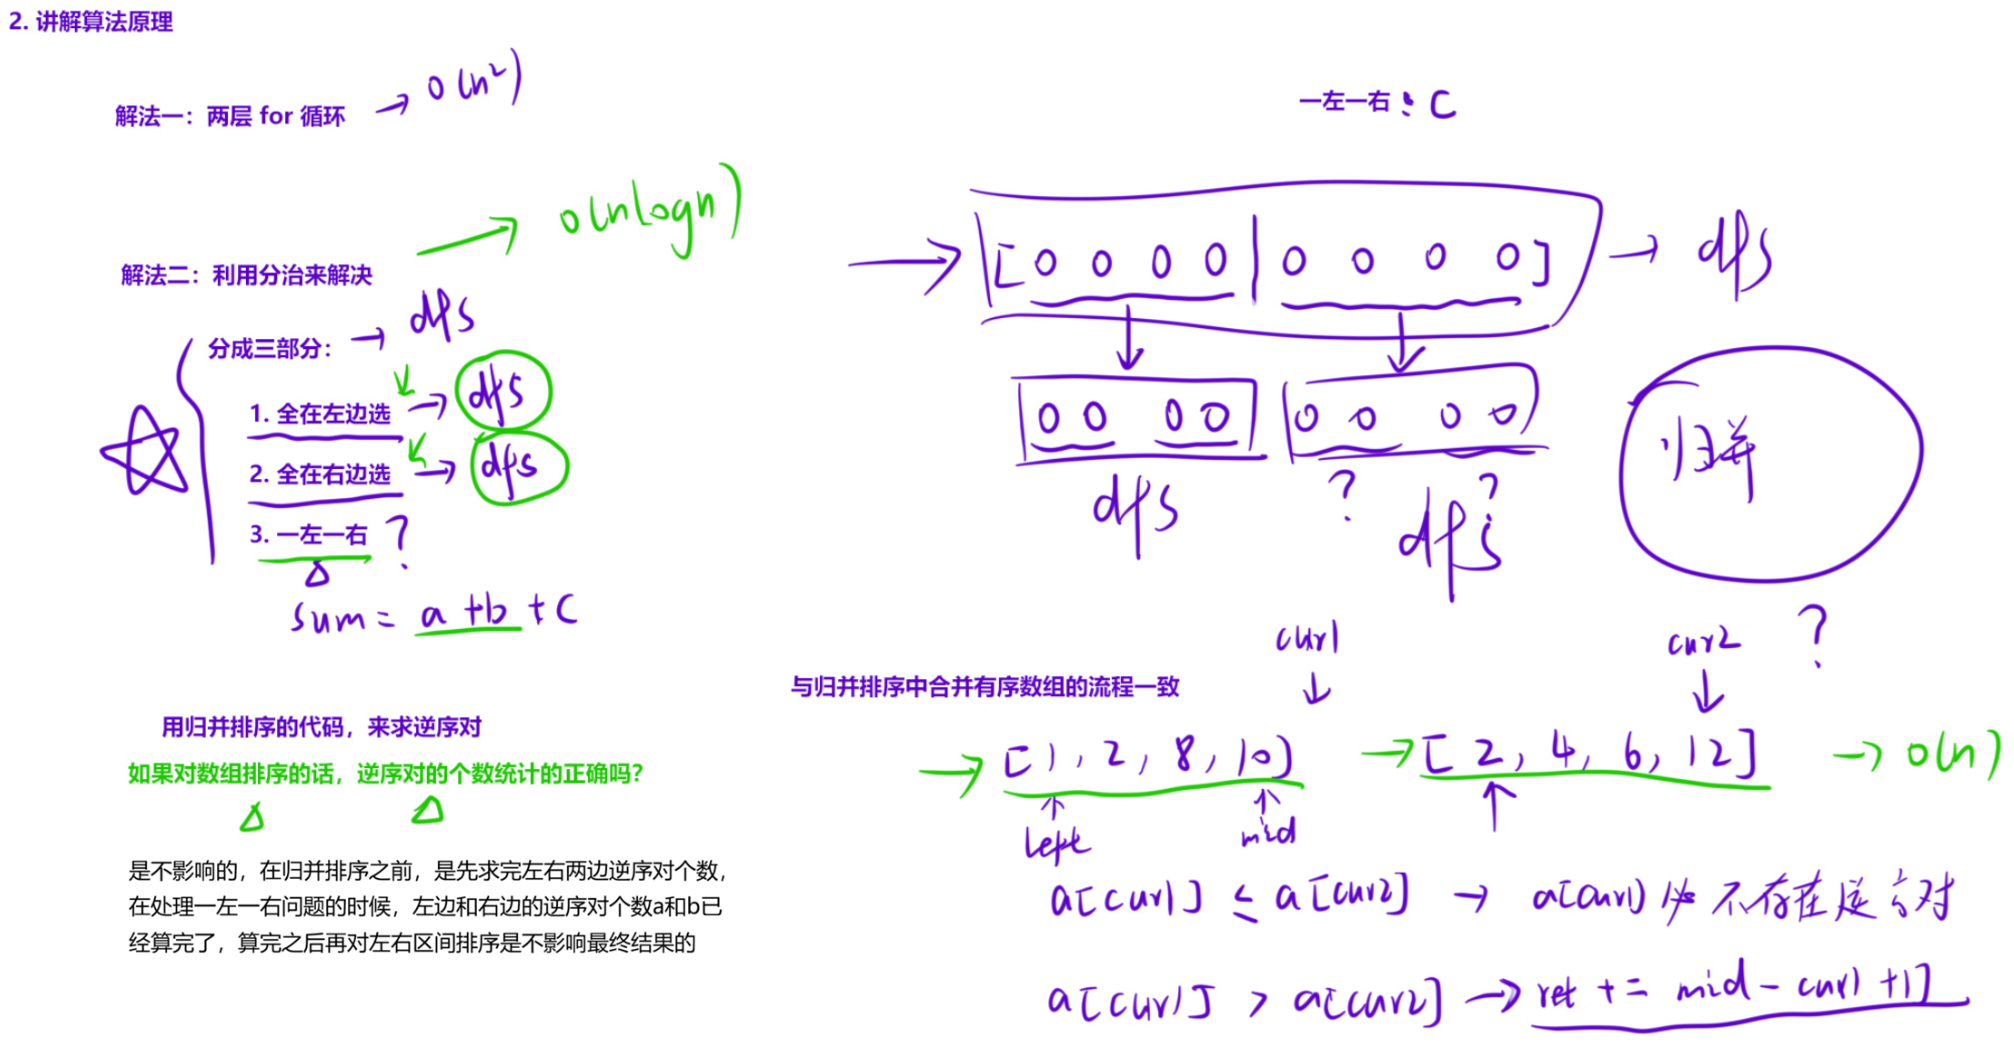 2. 讲解算法原理
解法一：两层 for 循环 → O(n²)
解法二：利用分治来解决 → O(nlogn)
分成三部分： → dfs
1. 全在左边选 → dfs
2. 全在右边选 → dfs
3. 一左一右 ?
sum = a + b + c
用归并排序的代码，来求逆序对
如果对数组排序的话，逆序对的个数统计的正确吗？
是不影响的，在归并排序之前，是先求完左右两边逆序对个数，
在处理一左一右问题的时候，左边和右边的逆序对个数a和b已
经算完了，算完之后再对左右区间排序是不影响最终结果的
一左一右 : C
→ [0 0 0 0 | 0 0 0 0] → dfs
0 0 0 0
0 0 0 0
? ?
dfs
dfs
归并
?
cur1
cur2
与归并排序中合并有序数组的流程一致
→ [1, 2, 8, 10] → [2, 4, 6, 12] → O(n)
left
mid
a[cur1] ≤ a[cur2] → a[cur1] 不存在逆序对
a[cur1] > a[cur2] → ret += mid - cur1 + 1